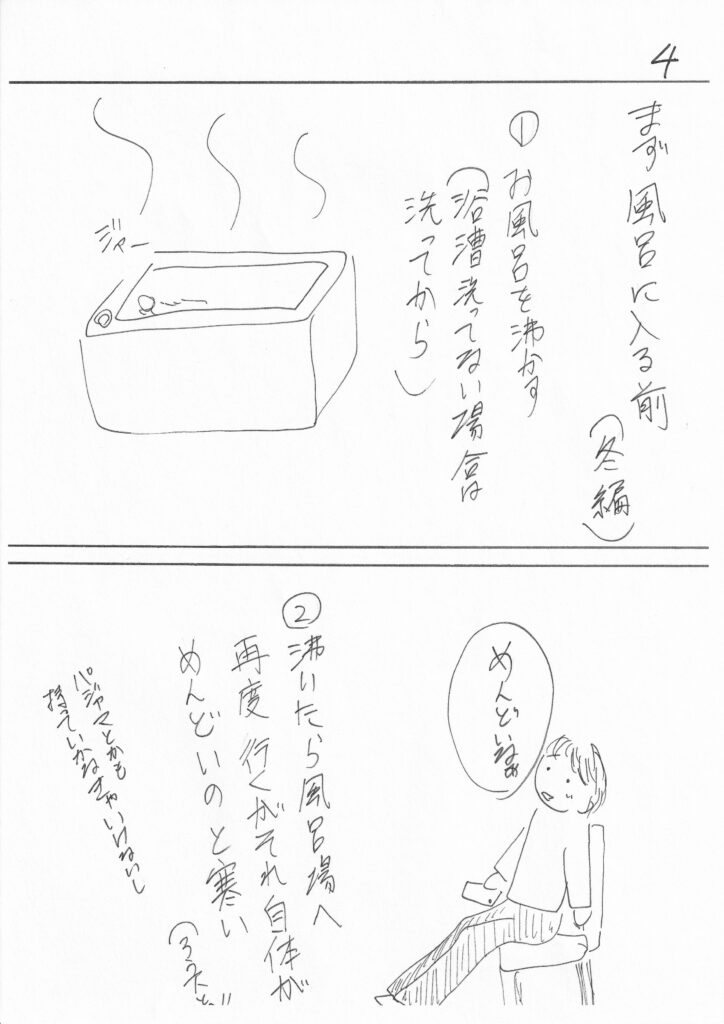 4
まず風呂に入る前
(冬編)
① お風呂を沸かす
(浴漕洗ってない場合は
洗ってから)
ジャー
めんどいなぁ
② 沸いたら風呂場へ
再度行くがそれ自体が
めんどいのと寒い
パジャマとかも
持っていかなきゃいけないし